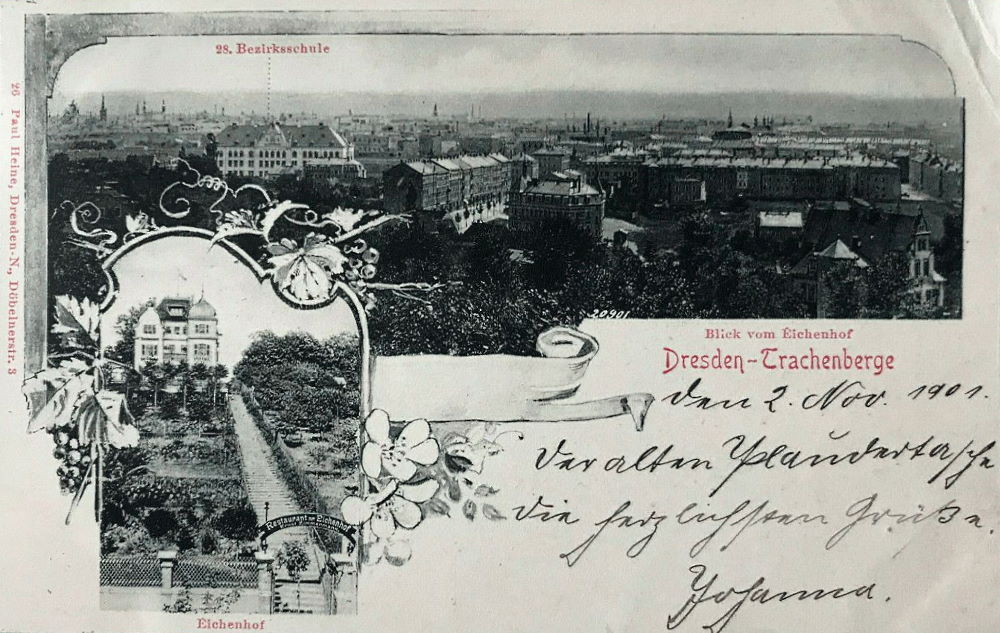 28. Bezirksschule
26 Paul Heine, Dresden-N., Döbelnerstr. 3
20901
Blick vom Eichenhof
Dresden-Trachenberge
den 2. Nov. 1901.
Der alten Plaudertasche
die herzlichsten Grüße.
Johanna.
Restaurant Eichenhof
Eichenhof